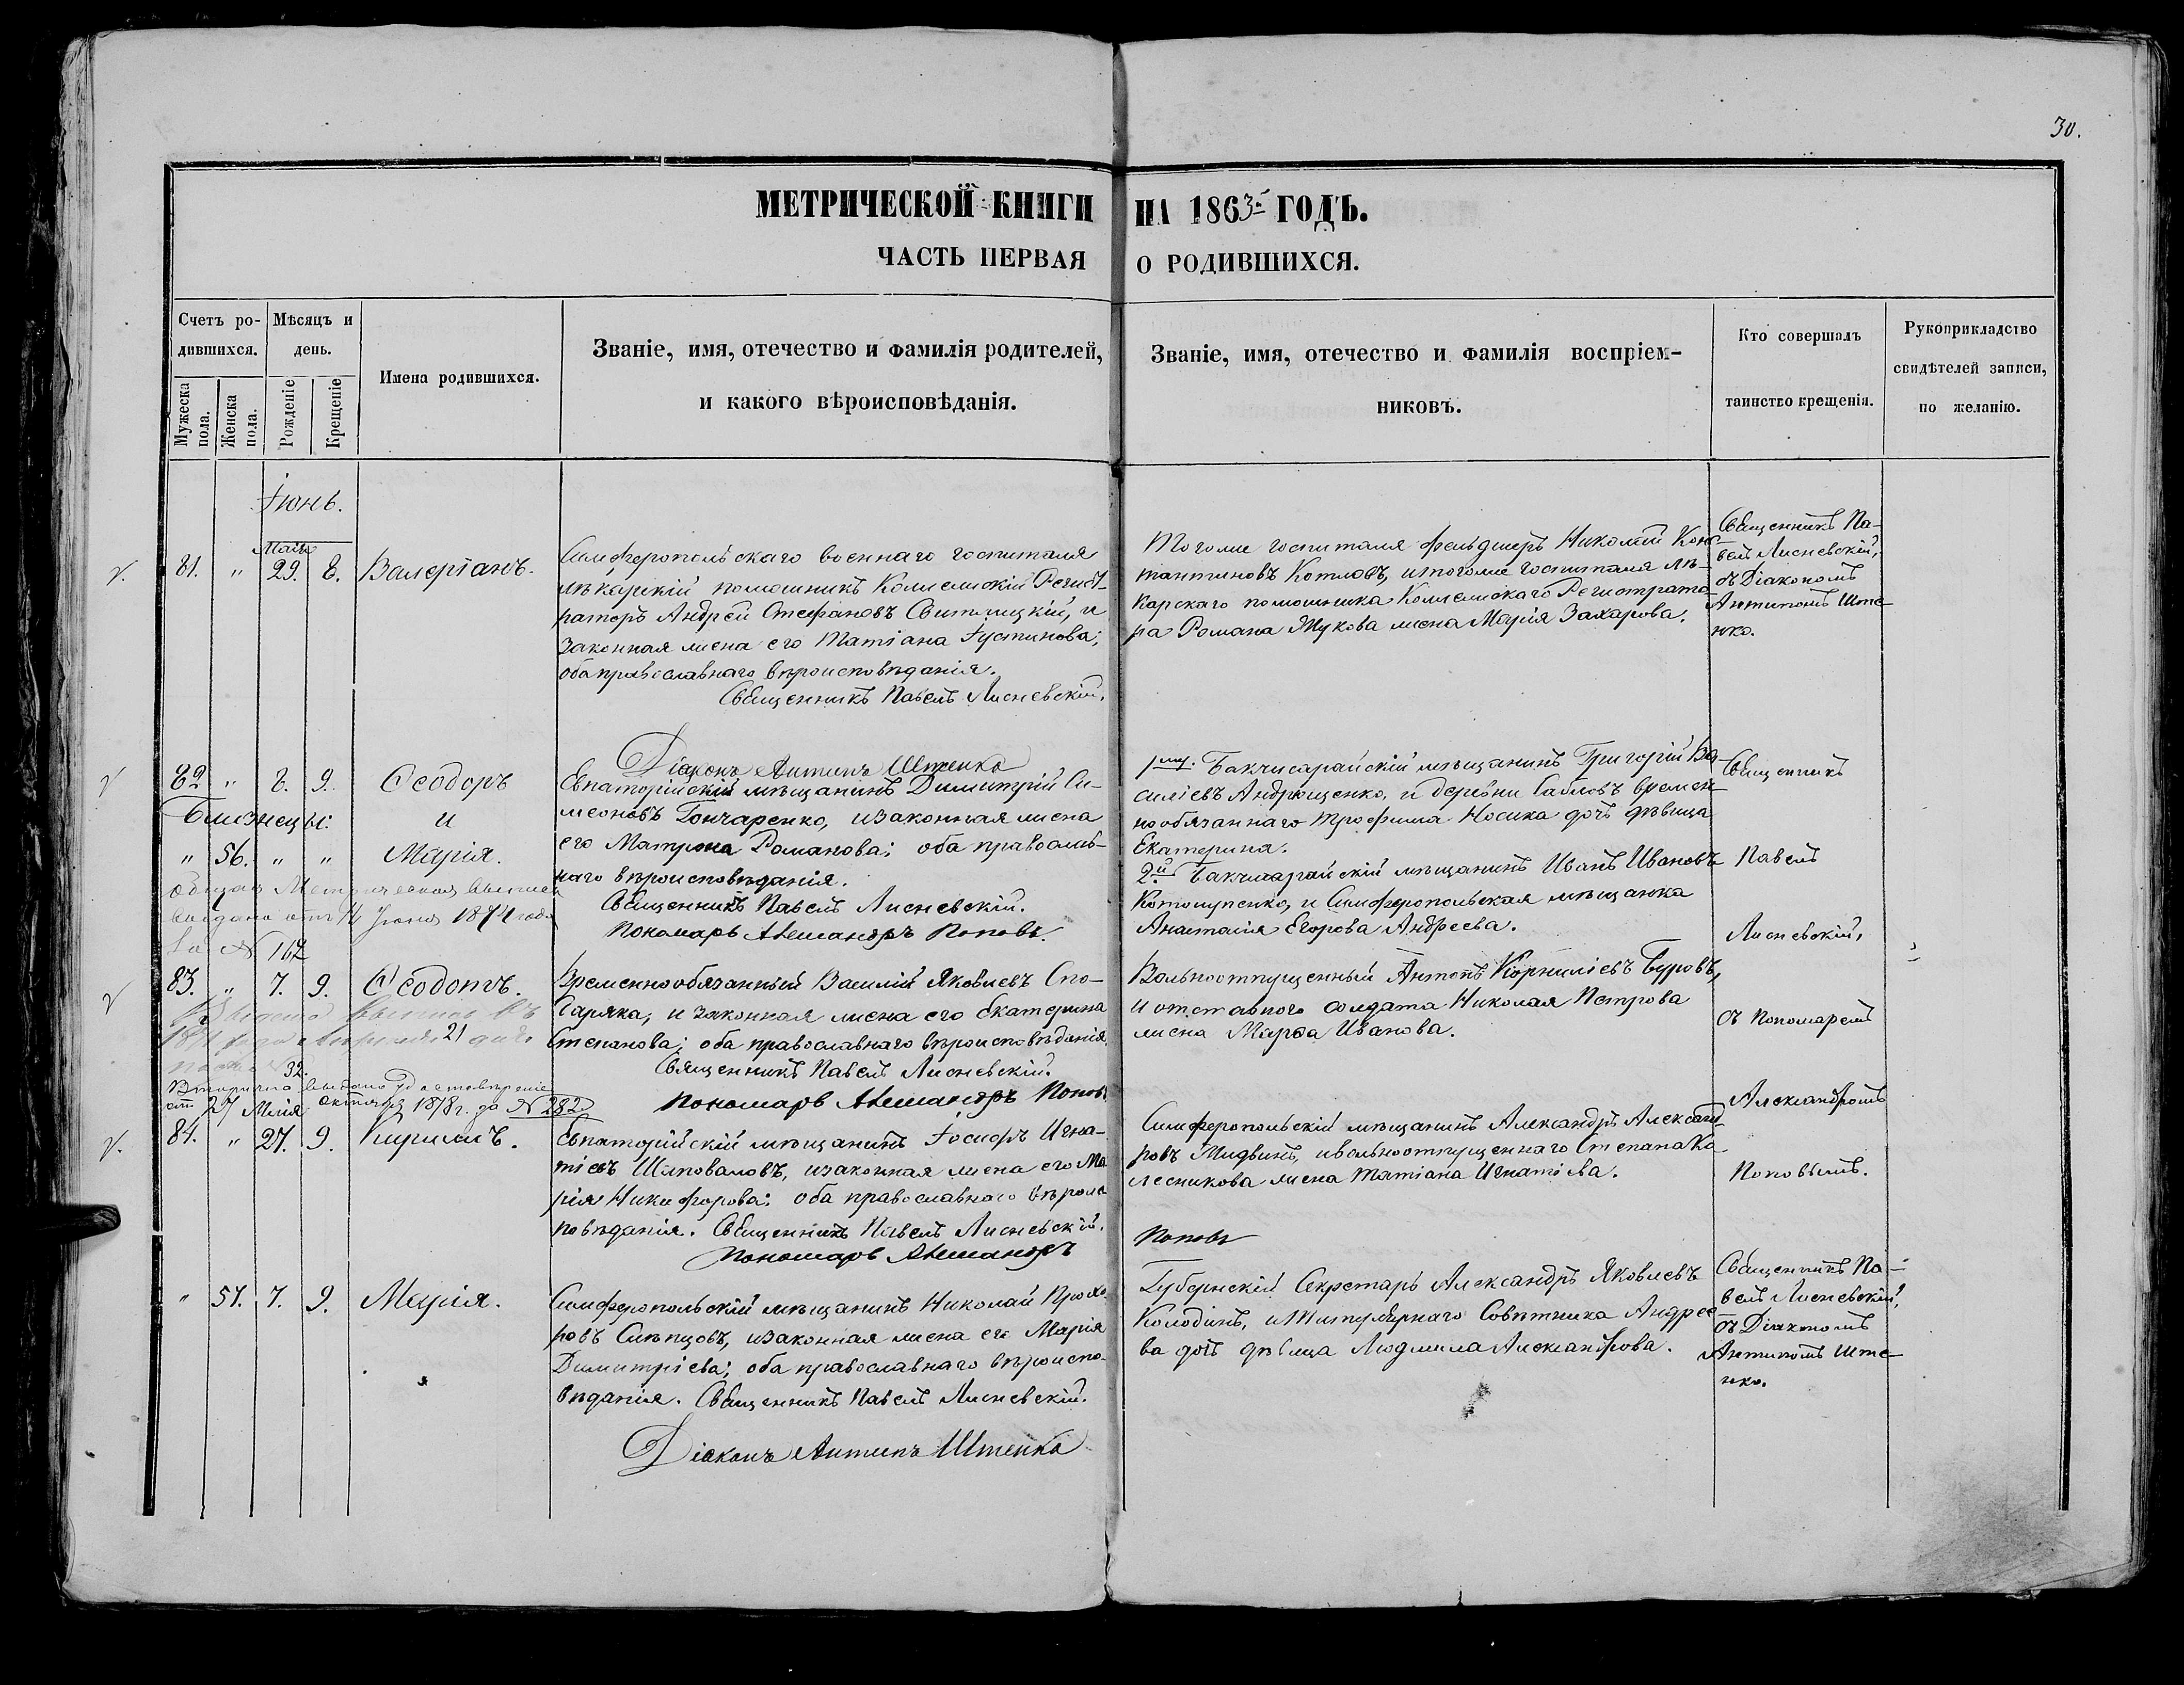 30.
МЕТРИЧЕСКОЙ КНИГИ НА 1863й ГОДЪ.
ЧАСТЬ ПЕРВАЯ О РОДИВШИХСЯ.
Счетъ ро-
дившихся.
Мужеска пола.
Женска пола.
Мѣсяцъ и
день.
Рожденіе
Крещеніе
Имена родившихся.
Званіе, имя, отечество и фамилія родителей,
и какого вѣроисповѣданія.
Званіе, имя, отечество и фамилія воспріем-
никовъ.
Кто совершалъ
таинство крещенія.
Рукоприкладство
свидѣтелей записи,
по желанію.
Іюнь.
Маія
81. " 29. 8. Валеріанъ.
Симферопольскаго военнаго госпиталя
лѣкарскій помошникъ Колежскій Регист-
раторъ Андрей Стефановъ Свитицкій, и
законная жена его Татіана Іустинова;
оба православнаго вѣроисповѣданія.
Священникъ Павелъ Лисневскій.
Діаконъ Антипъ Штенко
Тогоже госпиталя фельдшеръ Николай Конс-
тантиновъ Котловъ, итогоже госпиталя лѣ-
карскаго помошника Коллежскаго Регистрато-
ра Романа Жукова жена Марія Захарова.
Священникъ Па-
велъ Лисневскій,
съ Діакономъ
Антипомъ Ште-
нко.
82 " 8. 9. Ѳеодоръ
Близнецы: и
" 56. " " Марія.
Общая Метрическая выпись
выдана отъ 14 Іюня 1874 года
За № 167
Евпаторійскій мѣщанинъ Димитрій Си-
меоновъ Гончаренко, изаконная жена
его Матрона Романова; оба православ-
наго вѣроисповѣданія.
Священникъ Павелъ Лисневскій.
Пономарь Александръ Поповъ.
1й. Бакчисарайскій мѣщанинъ Григорій Ва-
силіевъ Андрющенко, и деревни Сабловъ времен-
нообязаннаго Трофима Носика дочь дѣвица
Екатерина.
2й Бакчисарайскій мѣщанинъ Иванъ Ивановъ
Котолупенко, и Симферопольская мѣщанка
Анастасія Егорова Андреева.
Священникъ
Павелъ
Лисневскій,
съ Пономаремъ
Александромъ
Поповымъ.
83. " 7. 9. Ѳеодотъ.
21 дня
32.
Вторично выдано удостовѣреніе
отъ 27 октября 1878 г. за № 282
Временнообязанный Василій Яковлевъ Спо-
Саряка, и законная жена его Екатерина
Степанова; оба православнаго вѣроисповѣданія.
Священникъ Павелъ Лисневскій.
Пономарь Александръ Поповъ
Вольноотпущенный Антонъ Корниліевъ Буровъ,
и отставного солдата Николая Петрова
жена Марѳа Иванова.
Маія
84. " 27. 9. Кириллъ.
Евпаторійскій мѣщанинъ Іосифъ Игна-
тіевъ Шаповаловъ, изаконная жена его Ма
рія Никифорова; оба православнаго вѣроис
повѣданія. Священникъ Павелъ Лисневскій.
Пономарь Александръ Поповъ
Симферопольскій мѣщанинъ Александръ Александ-
ровъ Жидвинъ, ивольноотпущеннаго Степана Ко-
лесникова жена Татіана Игнатіева.
" 57. 7. 9. Марія.
Симферопольскій мѣщанинъ Николай Прохо-
ровъ Слѣпцовъ, изаконная жена его Марія
Димитріева; оба православнаго вѣроиспо-
вѣданія. Священникъ Павелъ Лисневскій.
Діаконъ Антипъ Штенко
Губернскій Секретарь Александръ Яковлевъ
Колодинъ, и Титулярнаго Совѣтника Андрее-
ва дочь дѣвица Людмила Александрова.
Священникъ Па-
велъ Лисневскій,
съ Діакономъ
Антипомъ Ште-
нко.